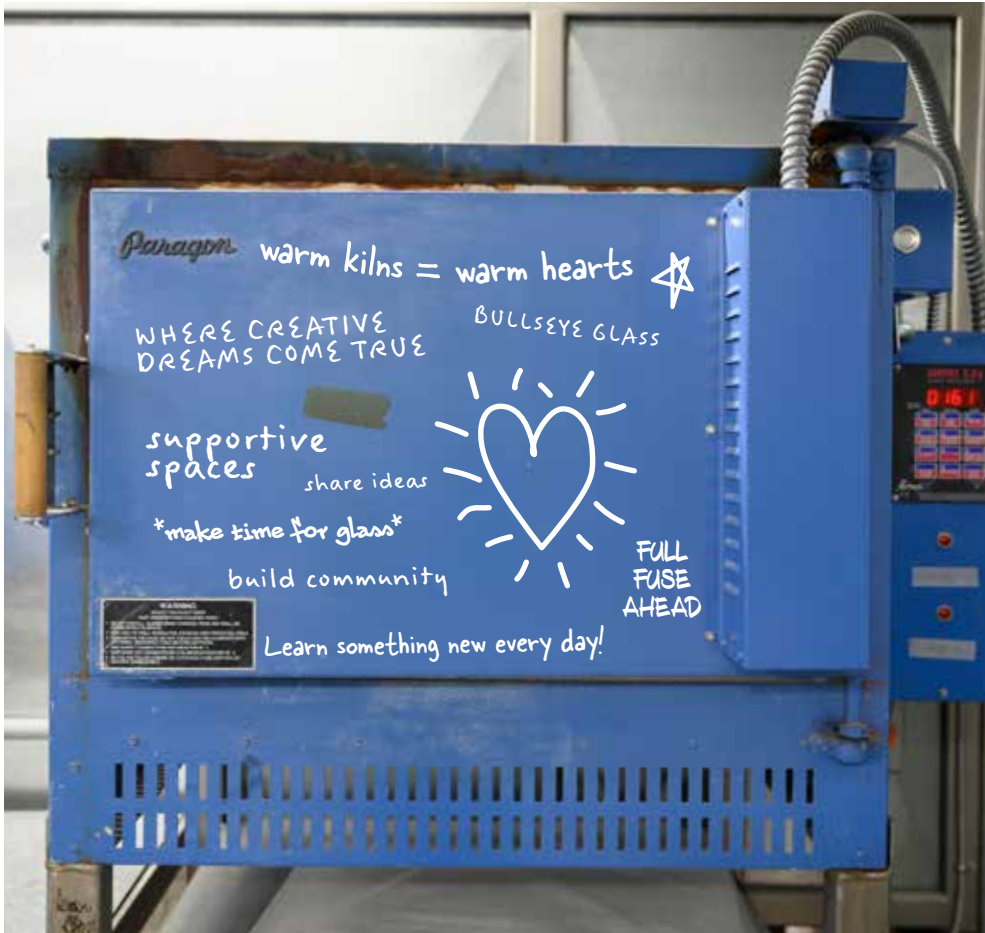 Paragon
warm kilns = warm hearts
BULLSEYE GLASS
WHERE CREATIVE
DREAMS COME TRUE
0161
supportive
spaces
share ideas
*make time for glass*
FULL
FUSE
AHEAD
build community
WARNING
Learn something new every day!